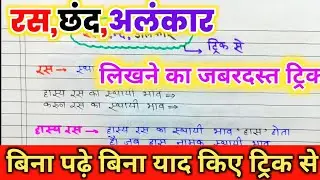 रस,छंद,अलंकार
अलंकार
ट्रिक से
रस→
लिखने का जबरदस्त ट्रिक
हास्य रस का स्थायी भाव ⇒
करुण रस का स्थायी भाव ⇒
हास्य रस → हास्य रस का स्थायी भाव "हास" होता
है। जब हास नामक स्थायी भाव
बिना पढ़े बिना याद किए ट्रिक से